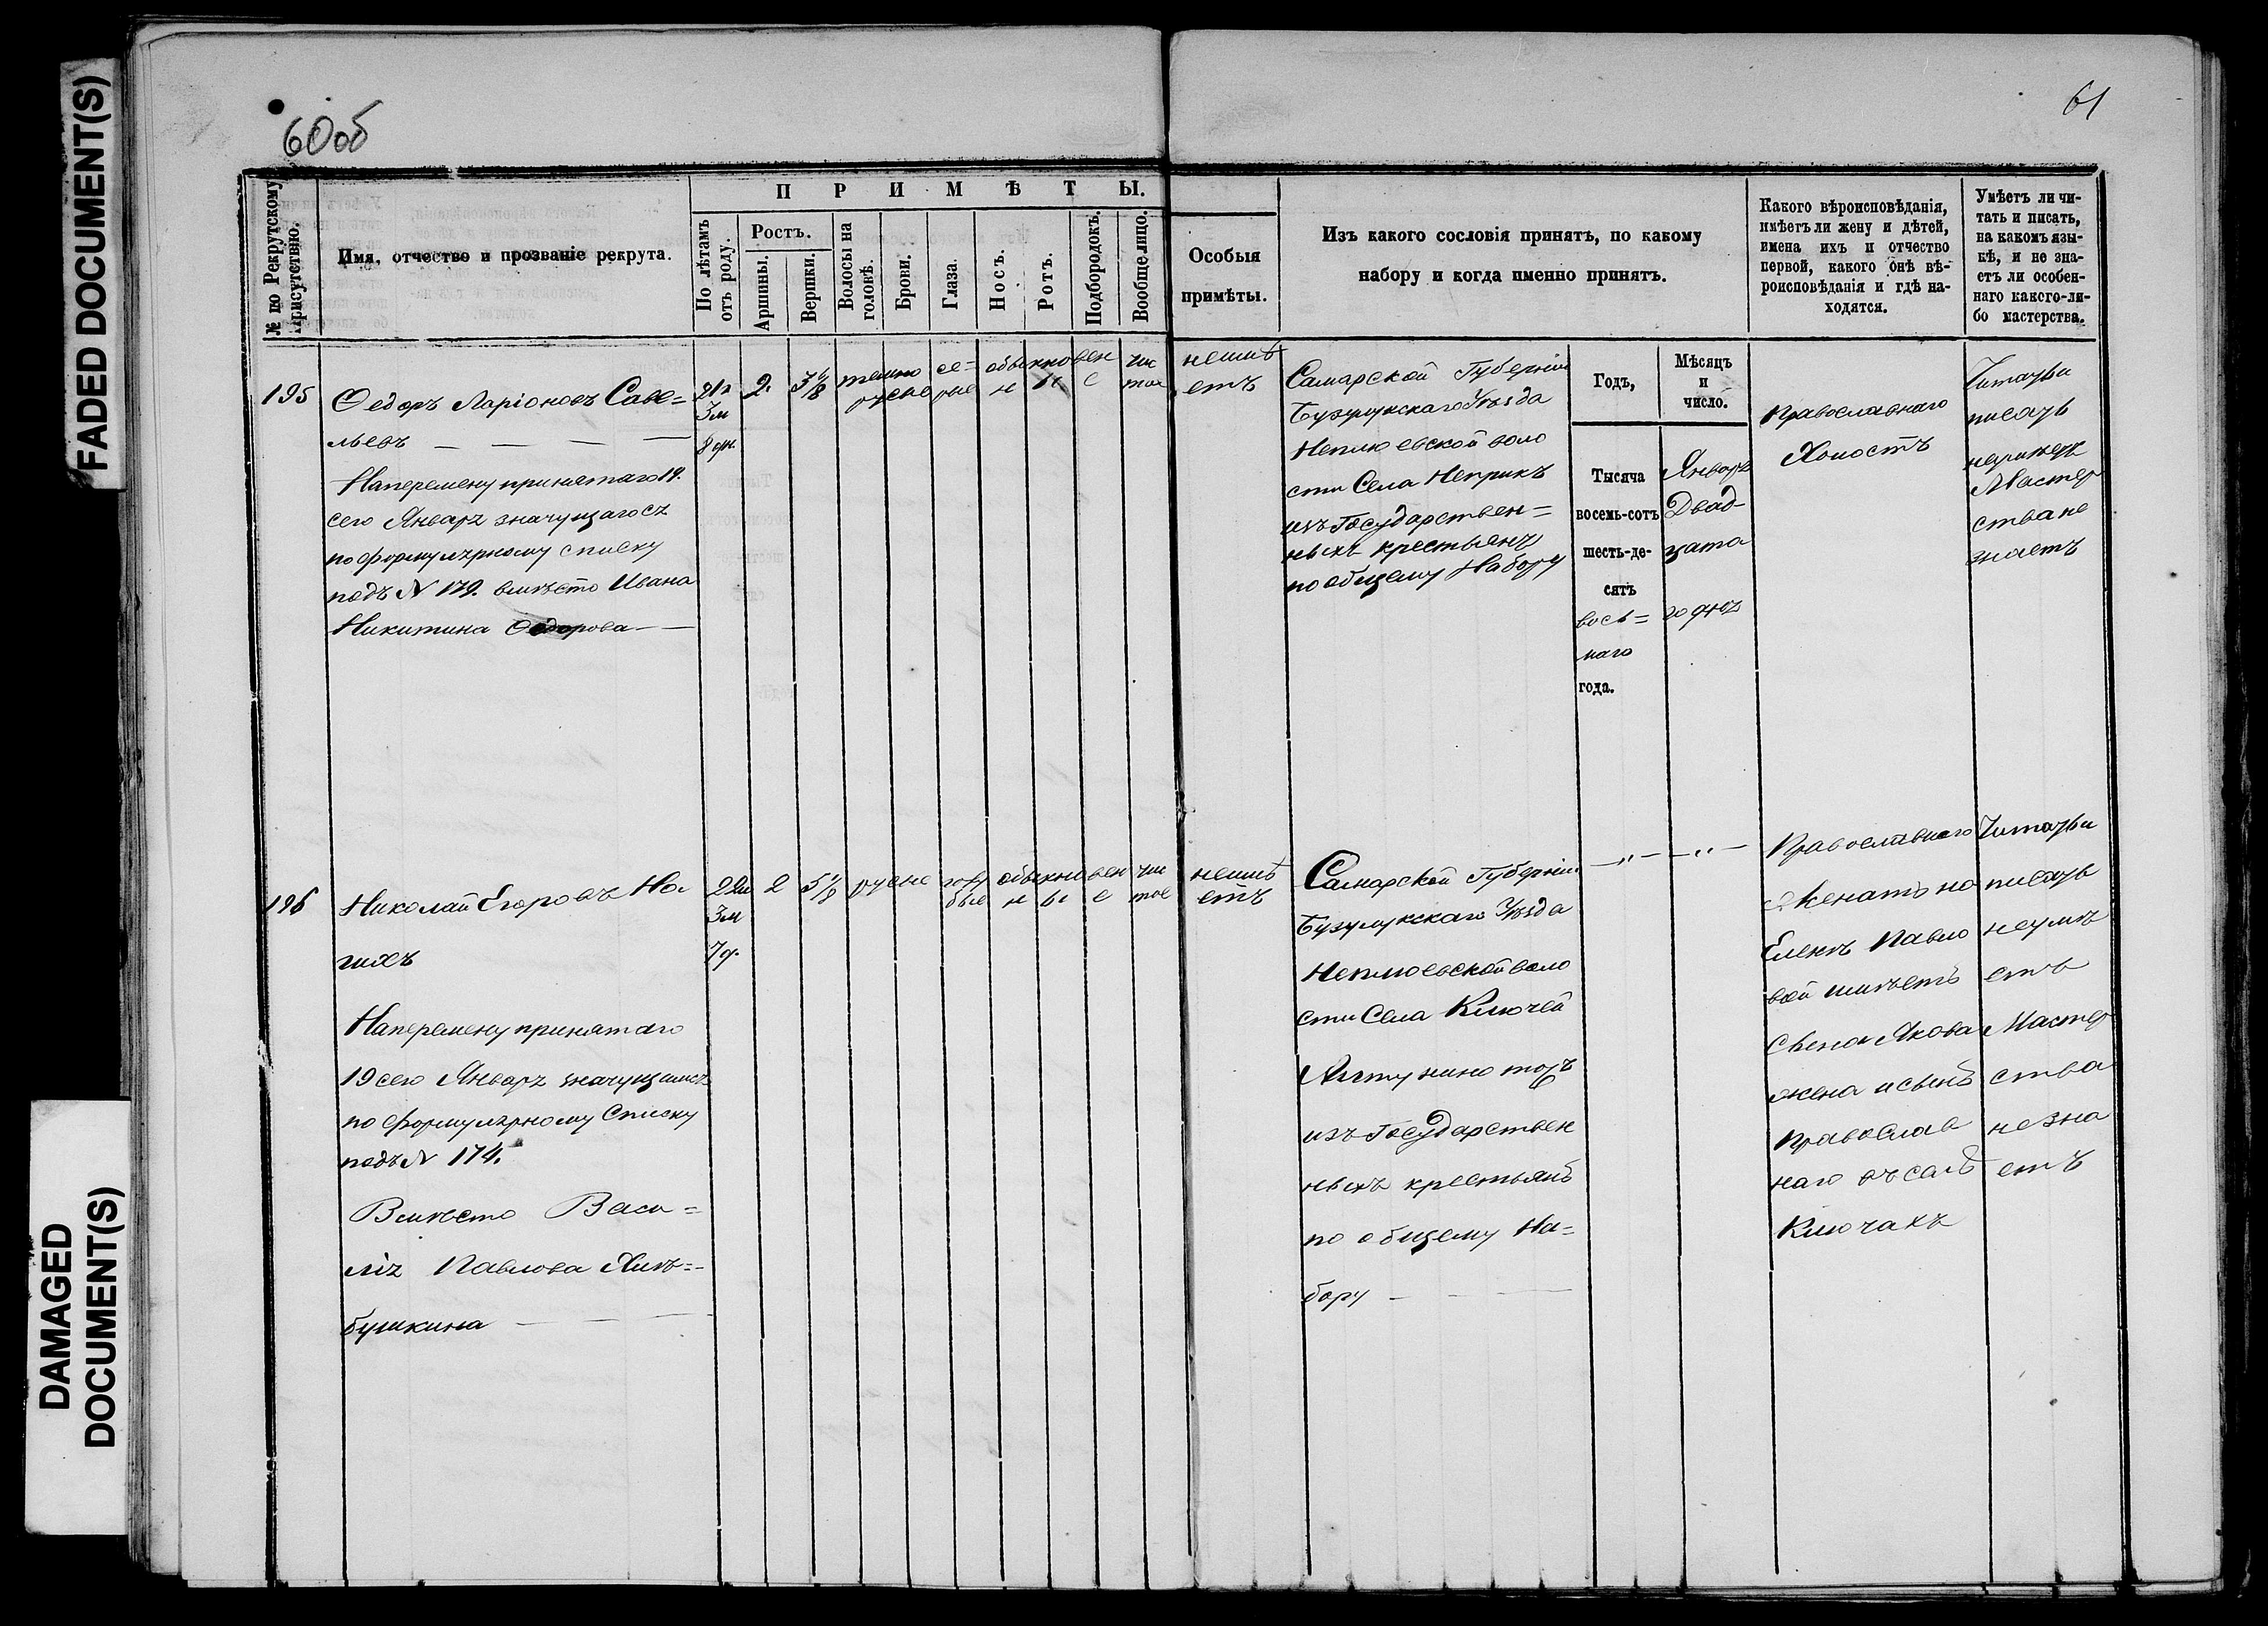 FADED DOCUMENT(S)
DAMAGED
DOCUMENT(S)
60об
61
№ по Рекрутскому
Присутствію.
Имя, отчество и прозваніе рекрута.
ПРИМѢТЫ.
По лѣтамъ
отъ роду.
Ростъ.
Аршины.
Вершки.
Волосы на
головѣ.
Брови.
Глаза.
Носъ.
Ротъ.
Подбородокъ.
Вообще лицо.
Особыя
примѣты.
Изъ какого сословія принятъ, по какому
набору и когда именно принятъ.
Какого вѣроисповѣданія,
имѣетъ ли жену и дѣтей,
имена ихъ и отчество
первой, какого онѣ вѣ-
роисповѣданія и гдѣ на-
ходятся.
Умѣетъ ли чи-
тать и писать,
на какомъ язы-
кѣ, и не зна-
етъ ли особен-
наго какого-ли-
бо мастерства.
195
Федоръ Ларіоновъ Саве=
льевъ
Наперемену принятаго 19.
сего Января значущагося
по формулярному списку
подъ № 179. вмѣсто Ивана
Никитина Федорова
21 г
3 м
8 дн.
2.
3 6/8
темно
русые
се=
рые
обыкновен
ные
чис
тое
неимѣ
етъ
Самарской Губерніи
Бузулукскаго Уѣзда
Неплюевской воло
сти Села Неприкъ
изъ Государствен=
ныхъ крестьянъ
по общему Набору
Годъ,
Мѣсяцъ
и
число.
Тысяча
восемь-сотъ
шесть-де-
сятъ
вось=
маго
года.
Январь
Двад-
цата
го дня
Православнаго
Холостъ
Читать и
писать
неумѣетъ
Мастер
ства не
знаетъ
196
Николай Егоровъ На
гихъ
Наперемену принятаго
19 сего Января значущимся
по формулярному Списку
подъ № 174.
Вмѣсто Васи=
лія Павлова Ямъ=
бушкина
22 г
3 м
7 д.
2
5 1/8
русые
голу
бые
обыкновен
ные
чис
тое
неимѣ
етъ
Самарской Губерніи
Бузулукскаго Уѣзда
Неплюевской воло
сти Села Ключей
тожъ
изъ Государствен
ныхъ крестьянъ
по общему На=
бору
—„— —„—
Православнаго
Женатъ на
Еленѣ Павло
вой имѣетъ
сына Якова
жена и сынъ
православ
наго въ селѣ
Ключахъ
Читать и
писать
неумѣ
етъ
Мастер
ства
не зна
етъ